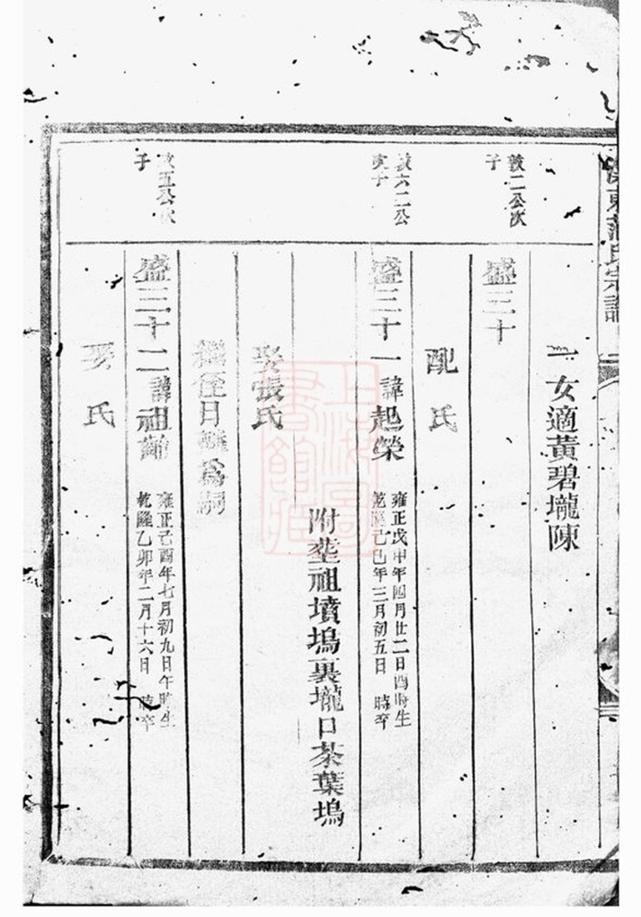 東范氏宗譜
一女適黃碧壠陳
敦二公次子
盛三十
配 氏
敦六二公
盛三十一 諱起榮 雍正戊申年四月廿二日酉時生
乾隆己巳年三月初五日 時卒
附塟祖墳塢裏壠口茶葉塢
娶張氏
繼侄日 爲嗣
五公次子
盛三十二 諱祖 雍正己酉年七月初九日午時生
乾隆乙卯年二月十六日 時卒
娶 氏
上海圖書館藏